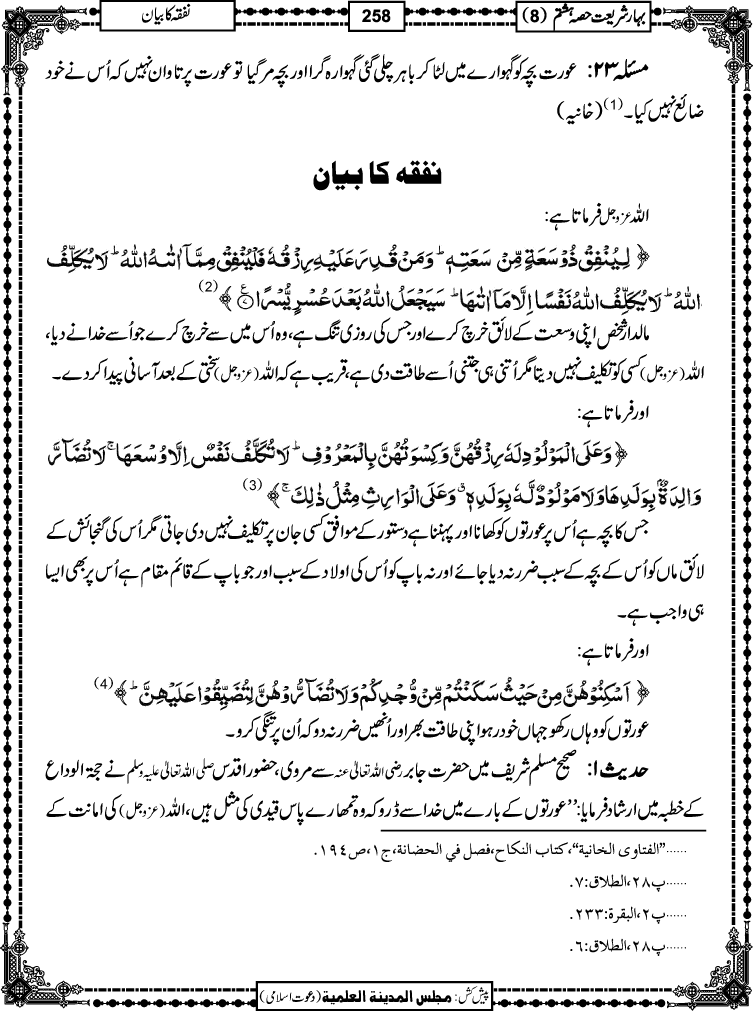 بہارِ شریعت حصہ ہشتم (8)
258
نفقہ کا بیان
مسئلہ ۲۳: عورت بچہ کو گہوارے میں لٹا کر باہر چلی گئی گہوارہ گرا اور بچہ مر گیا تو عورت پر تاوان نہیں کہ اُس نے خود
ضائع نہیں کیا۔(1) (خانیہ)
نفقہ کا بیان
اللہ عزوجل فرماتا ہے:
﴿ لِیُنْفِقْ ذُوْ سَعَةٍ مِّنْ سَعَتِهٖ ؕ وَ مَنْ قُدِرَ عَلَیْهِ رِزْقُهٗ فَلْیُنْفِقْ مِمَّاۤ اٰتٰىهُ اللّٰهُ ؕ لَا یُكَلِّفُ
اللّٰهُ ؕ لَا یُكَلِّفُ اللّٰهُ نَفْسًا اِلَّا مَاۤ اٰتٰىهَا ؕ سَیَجْعَلُ اللّٰهُ بَعْدَ عُسْرٍ یُّسْرًا۠ ﴾(2)
مالدار شخص اپنی وسعت کے لائق خرچ کرے اور جس کی روزی تنگ ہے، وہ اُس میں سے خرچ کرے جو اُسے خدا نے دیا،
اللہ (عزوجل) کسی کو تکلیف نہیں دیتا مگر اُتنی ہی جتنی اُسے طاقت دی ہے، قریب ہے کہ اللہ (عزوجل) سختی کے بعد آسانی پیدا کر دے۔
اور فرماتا ہے:
﴿ وَ عَلَى الْمَوْلُوْدِ لَهٗ رِزْقُهُنَّ وَ كِسْوَتُهُنَّ بِالْمَعْرُوْفِ ؕ لَا تُكَلَّفُ نَفْسٌ اِلَّا وُسْعَهَا ۚ لَا تُضَآرَّ
وَالِدَةٌۢ بِوَلَدِهَا وَ لَا مَوْلُوْدٌ لَّهٗ بِوَلَدِهٖ ۗ وَ عَلَى الْوَارِثِ مِثْلُ ذٰلِكَ ۚ ﴾(3)
جس کا بچہ ہے اُس پر عورتوں کو کھانا اور پہننا ہے دستور کے موافق کسی جان پر تکلیف نہیں دی جاتی مگر اُس کی گنجائش کے
لائق ماں کو اُس کے بچہ کے سبب ضرر نہ دیا جائے اور نہ باپ کو اُس کی اولاد کے سبب اور جو باپ کے قائم مقام ہے اُس پر بھی ایسا
ہی واجب ہے۔
اور فرماتا ہے:
﴿ اَسْكِنُوْهُنَّ مِنْ حَیْثُ سَكَنْتُمْ مِّنْ وُّجْدِكُمْ وَ لَا تُضَآرُّوْهُنَّ لِتُضَیِّقُوْا عَلَیْهِنَّ ؕ ﴾(4)
عورتوں کو وہاں رکھو جہاں خود رہو اپنی طاقت بھر اور اُنھیں ضرر نہ دو کہ اُن پر تنگی کرو۔
حدیث ۱: صحیح مسلم شریف میں حضرت جابر رضی اللہ تعالیٰ عنہ سے مروی، حضور اقدس صلی اللہ تعالیٰ علیہ وسلم نے حجۃ الوداع
کے خطبہ میں ارشاد فرمایا: ’’عورتوں کے بارے میں خدا سے ڈرو کہ وہ تمھارے پاس قیدی کی مثل ہیں، اللہ (عزوجل) کی امانت کے
......”الفتاوى الخانية“، كتاب النكاح، فصل في الحضانة، ج١، ص١٩٤.
......پ٢٨، الطلاق: ٧.
......پ٢، البقرة: ٢٣٣.
......پ٢٨، الطلاق: ٦.
پیش کش: مجلس المدینة العلمیة (دعوت اسلامی)